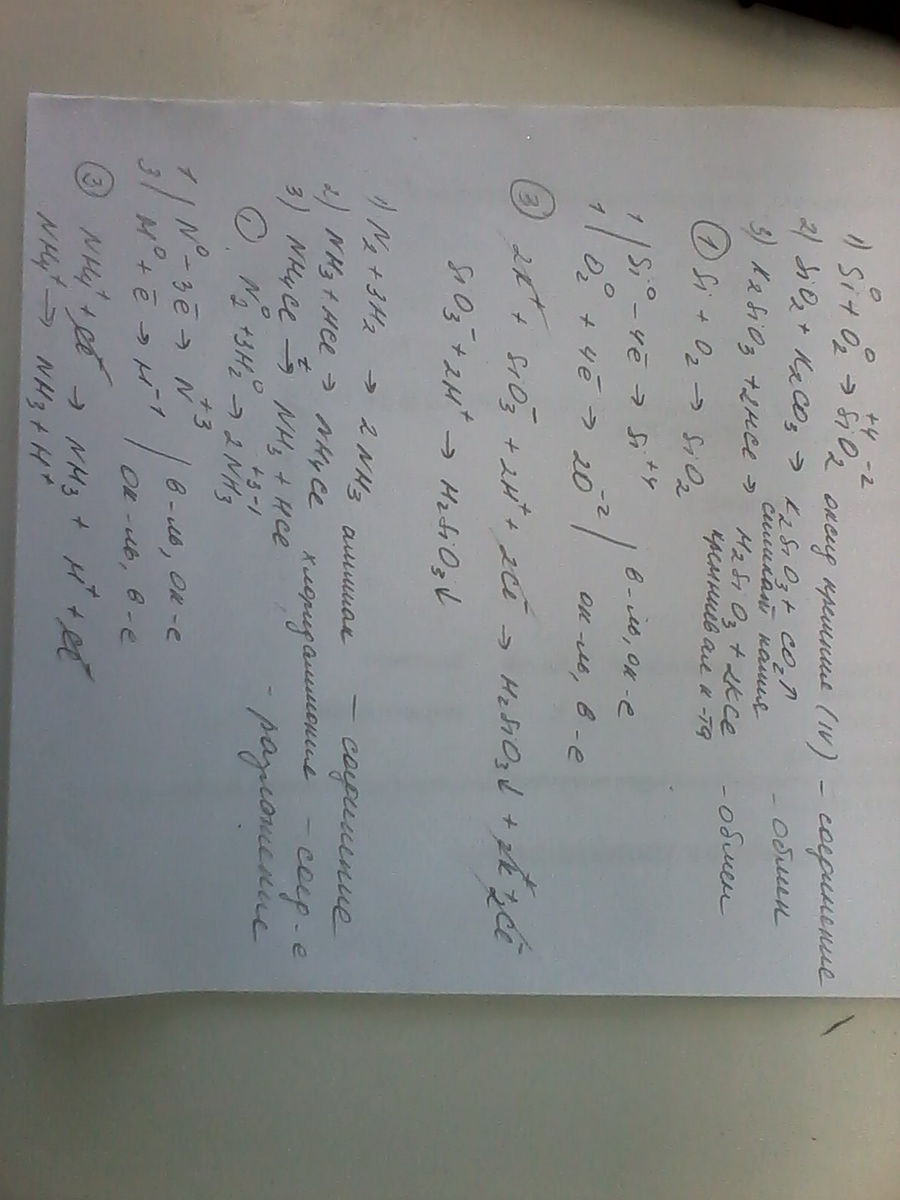 1) Si⁰ + O₂⁰ → Si⁺⁴O₂⁻² оксид кремния (IV) – соединение
2) SiO₂ + K₂CO₃ → K₂SiO₃ + CO₂↑ – обмен
силикат калия
3) K₂SiO₃ + 2HCl → H₂SiO₃ + 2KCl – обмен
кремниевая к-та
① Si + O₂ → SiO₂
1 | Si⁰ – 4ē → Si⁺⁴ | в-ль, ок-е
1 | O₂⁰ + 4ē → 2O⁻² | ок-ль, в-е
③ 2K⁺ + SiO₃⁻ + 2H⁺ + 2Cl⁻ → H₂SiO₃↓ + 2K⁺ + 2Cl⁻
SiO₃⁻ + 2H⁺ → H₂SiO₃↓
1) N₂ + 3H₂ → 2NH₃ аммиак – соединение
2) NH₃ + HCl → NH₄Cl хлорид аммония – соед-е
3) NH₄Cl →ᵗ NH₃ + HCl – разложение
① N₂⁰ + 3H₂⁰ → 2N⁺³H₃⁻¹
1 | N⁰ – 3ē → N⁺³ | в-ль, ок-е
3 | H⁰ + ē → H⁻¹ | ок-ль, в-е
③ NH₄⁺ + Cl⁻ → NH₃ + H⁺ + Cl⁻
NH₄⁺ → NH₃ + H⁺